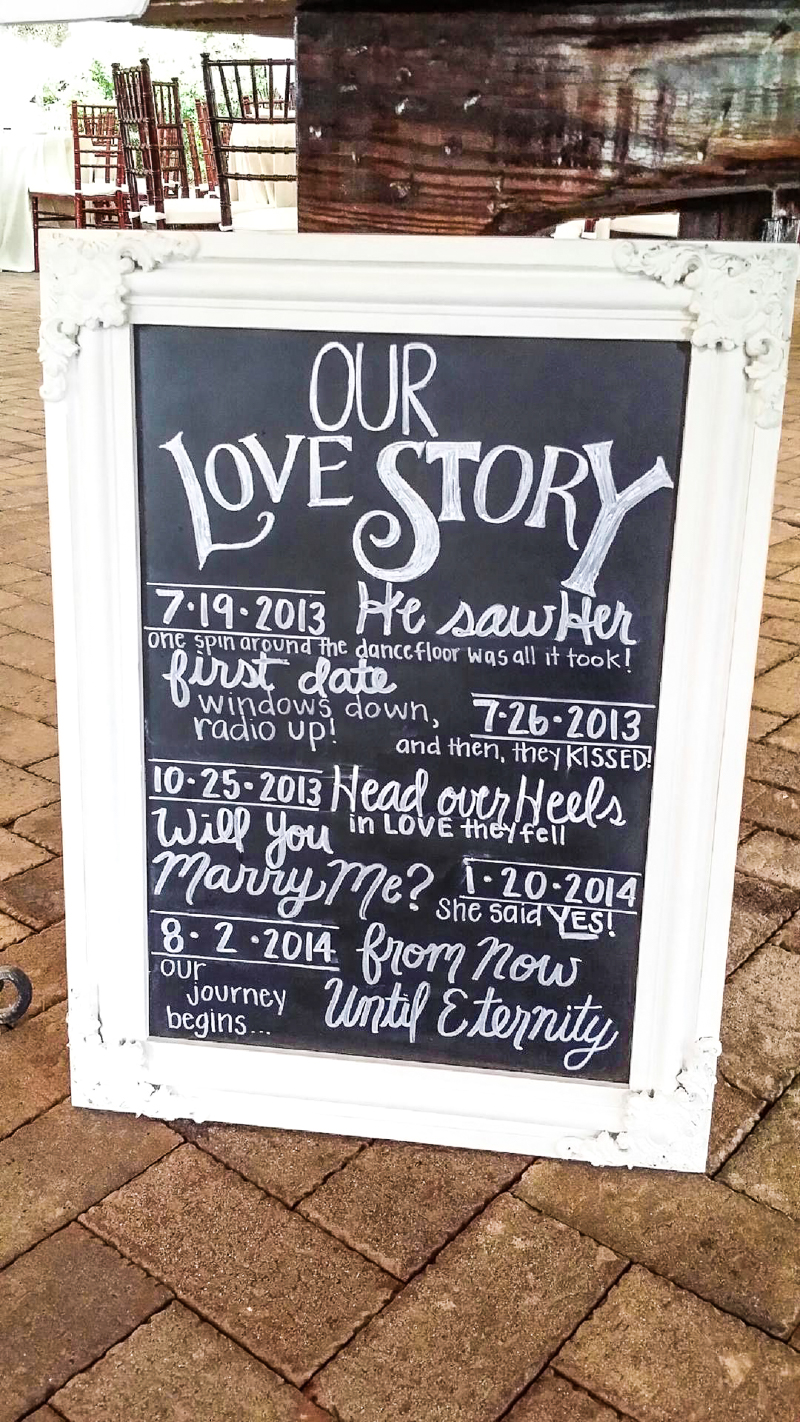 OUR
LOVE STORY
7·19·2013 He saw Her
one spin around the dancefloor was all it took!
first date
windows down, 7·26·2013
radio up!
and then, they KISSED!
10·25·2013 Head over Heels
in LOVE they fell
Will You
Marry Me? 1·20·2014
She said YES!
8·2·2014 from Now
our
journey Until Eternity
begins...